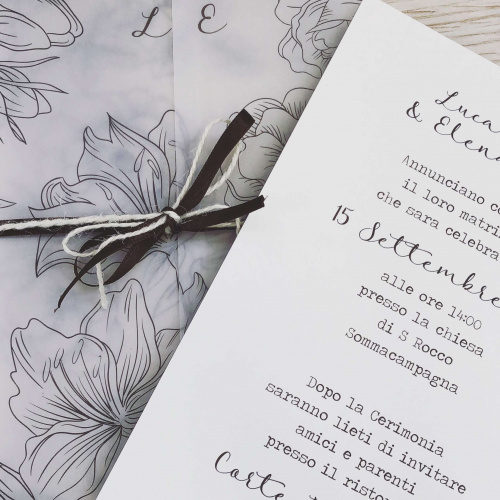 L E
Luca
& Elena
Annunciano
il loro
che sara
15 Settembre
alle ore 14:00
presso la chiesa
di S Rocco
Sommacampagna
Dopo la Cerimonia
saranno lieti di invitare
amici e parenti
presso il
Corte